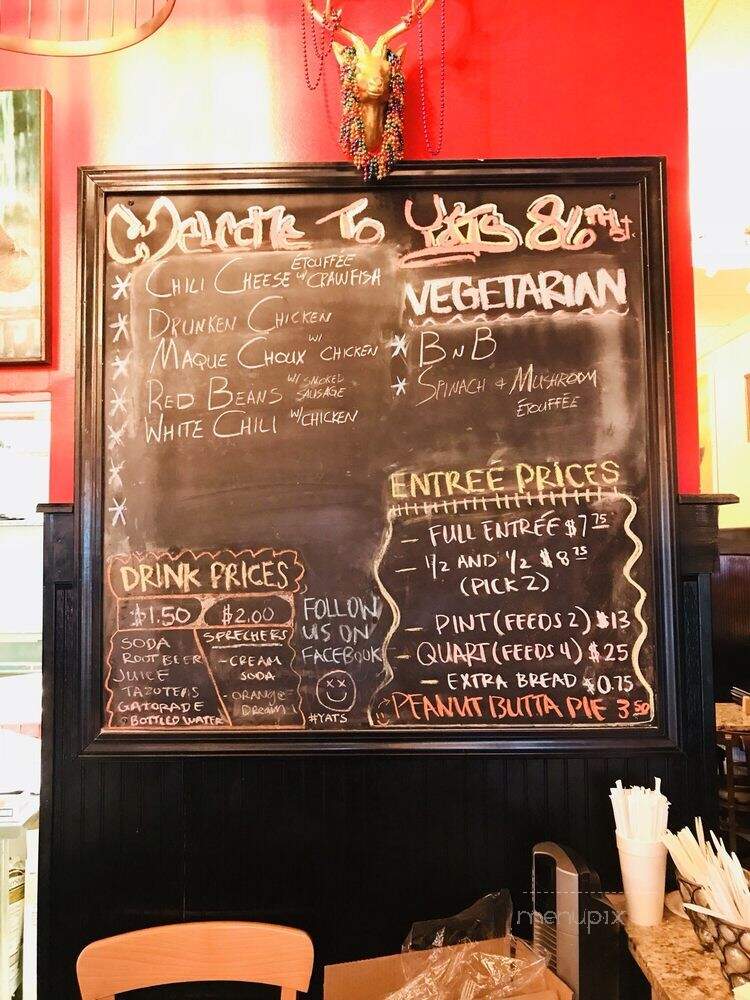 Welcome To Yats 86TH St.
* CHILI CHEESE ETOUFFÉE w/ CRAWFISH
* DRUNKEN CHICKEN
* MAQUE CHOUX w/ CHICKEN
* RED BEANS w/ SMOKED SAUSAGE
* WHITE CHILI w/ CHICKEN
*
*
VEGETARIAN
* B N B
* SPINACH & MUSHROOM
ÉTOUFFÉE
ENTRÉE PRICES
- FULL ENTRÉE $7.75
- 1/2 AND 1/2 $8.75
(PICK 2)
- PINT (FEEDS 2) $13
- QUART (FEEDS 4) $25
- EXTRA BREAD $0.75
PEANUT BUTTA PIE 3.50
DRINK PRICES
$1.50
SODA
ROOT BEER
JUICE
TAZO TEAS
GATORADE
BOTTLED WATER
$2.00
SPRECHERS
- CREAM
SODA
- ORANGE
DREAM
FOLLOW
US ON
FACEBOOK
#YATS
menupix